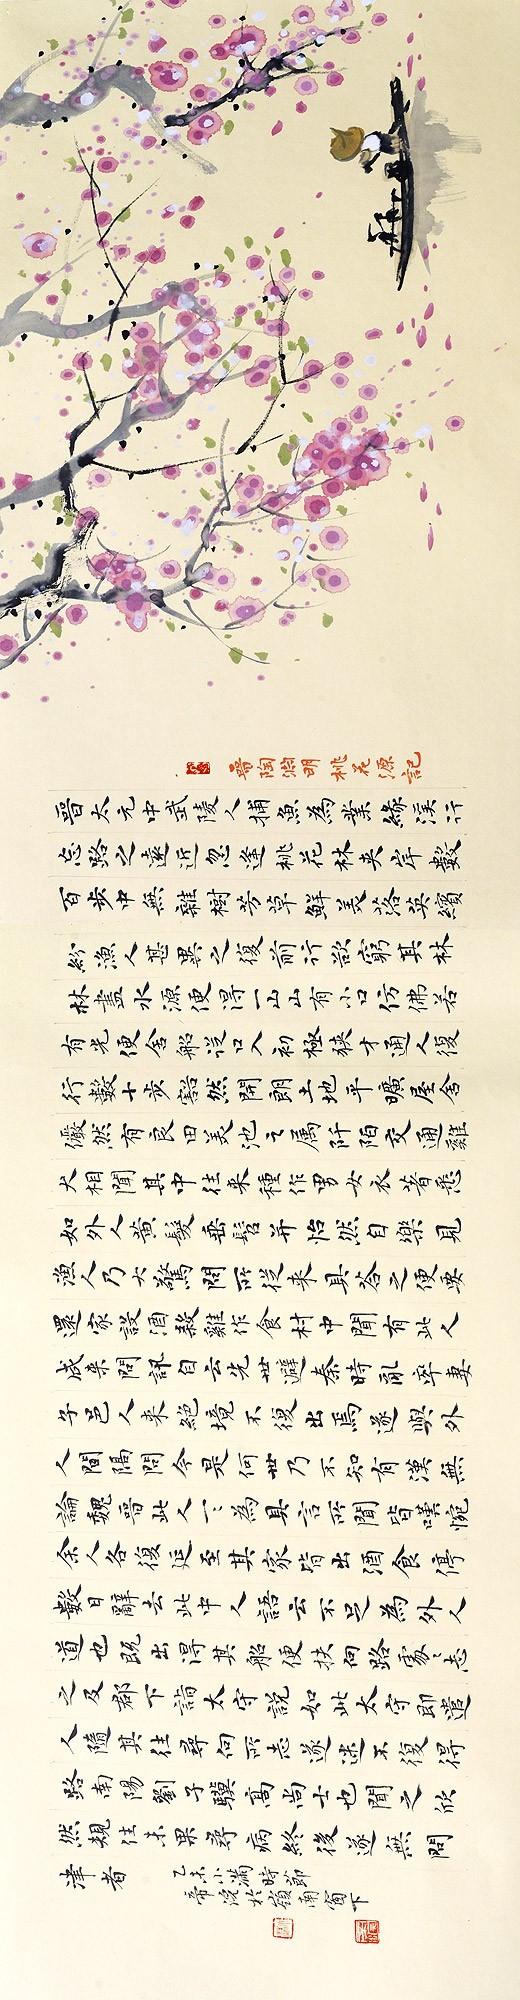 晉陶淵明桃花源記
晉太元中武陵人捕魚為業緣溪行
忘路之遠近忽逢桃花林夾岸數
百步中無雜樹芳草鮮美落英繽
紛漁人甚異之復前行欲窮其林
林盡水源便得一山山有小口仿佛若
有光便舍船從口入初極狹才通人復
行數十步豁然開朗土地平曠屋舍
儼然有良田美池之属阡陌交通雞
犬相聞其中往来種作男女衣著悉
如外人黃髮垂髫并怡然自樂見
漁人乃大驚問所從来具答之便要
還家設酒殺雞作食村中聞有此人
咸来問訊自云先世避秦時亂率妻
子邑人来絕境不復出焉遂與外
人間隔問今是何世乃不知有漢無
論魏晉此人一〻為具言所聞皆嘆惋
余人各復延至其家皆出酒食停
數日辭去此中人語云不足為外人
道也既出得其船便扶向路處〻志
之及郡下詣太守說如此太守即遣
人隨其往尋向所志遂迷不復得
路南陽劉子驥高尚士也聞之欣
然規往未果尋病終後遂無問
津者
乙未小滿時節
帝浣於嶺南窗下